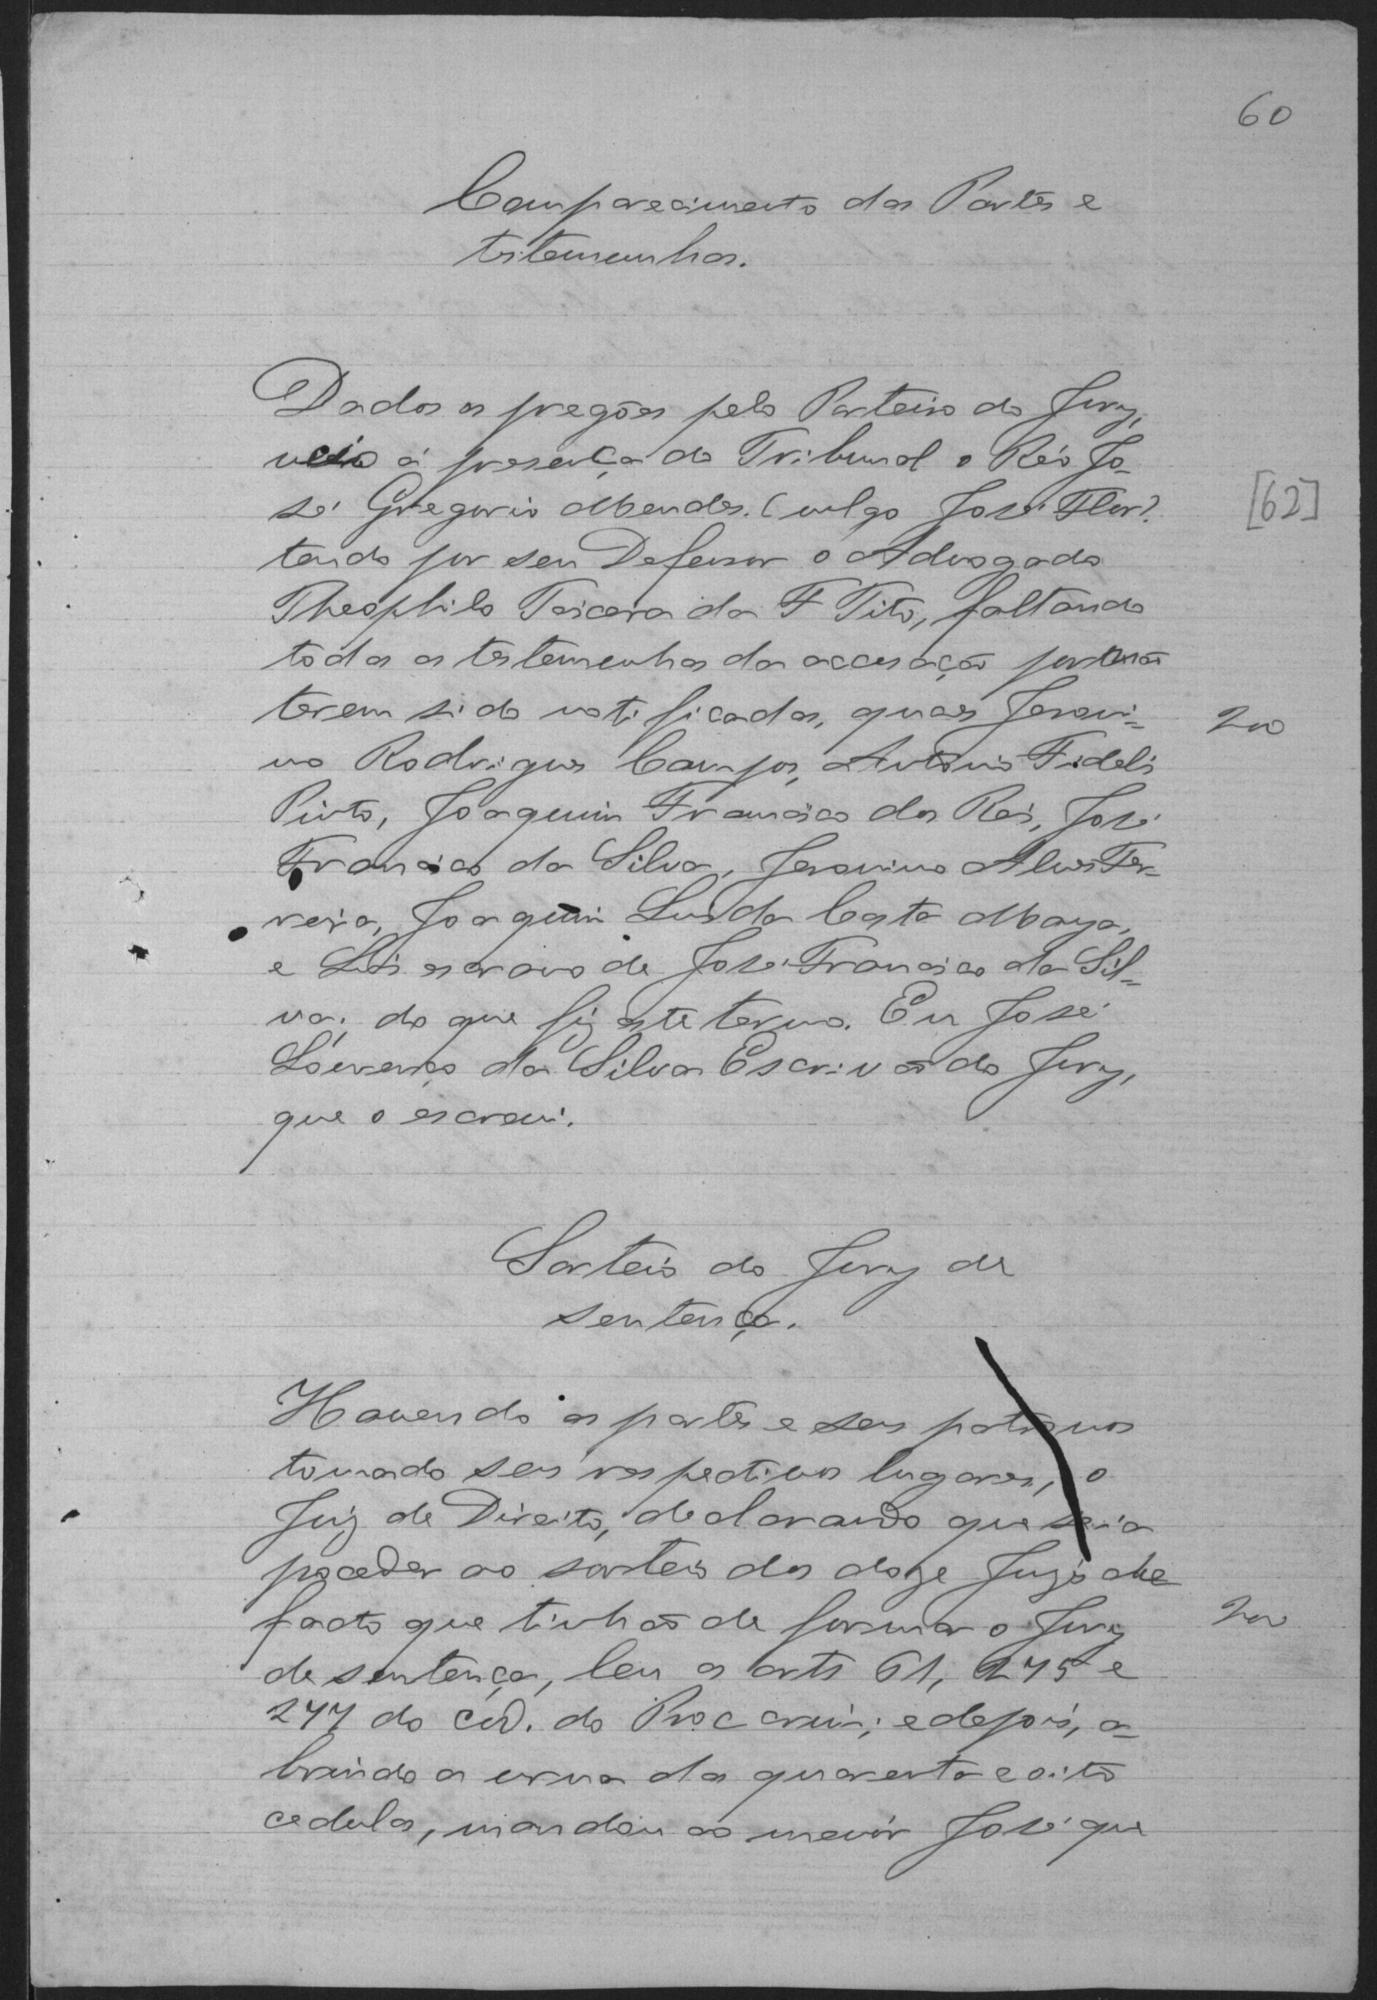 60
Comparecimento das Partes e
testemunhas.
Dados os pregões pelo Porteiro do Jury,
veio á presença do Tribunal o Réo Jo-
sé Gregorio Mendes. (vulgo José Flor)
tendo por seu Defensor o Advogado
Theophilo Teixeira da F Tito, faltando
todas as testemunhas da accusação por não
[62]
terem sido notificadas, quaes Jeroni-
200
mo Rodrigues Campos, Antonio Fidelis
Pinto, Joaquim Francisco dos Reis, José
Francisco da Silva, Jeronimo Alves Fer-
reira, Joaquim Luis da Costa Maya,
e Luis escravo de José Francisco da Sil-
va, do que fiz este termo. Eu José
Lourenço da Silva Escrivão do Jury,
que o escrevi.
Sorteio do Jury de
sentença.
Havendo as partes e seus patronos
tomado seus respectivos lugares, o
Juiz de Direito, declarando que se ia
proceder ao sorteio dos doze Juizes de
facto que tinhão de formar o Jury
200
de sentença, leu os arts 61, 275 e
277 do Cod. do Proc crim; e depois, a-
brindo a urna das quarenta e oito
cedulas, mandou ao menór José que